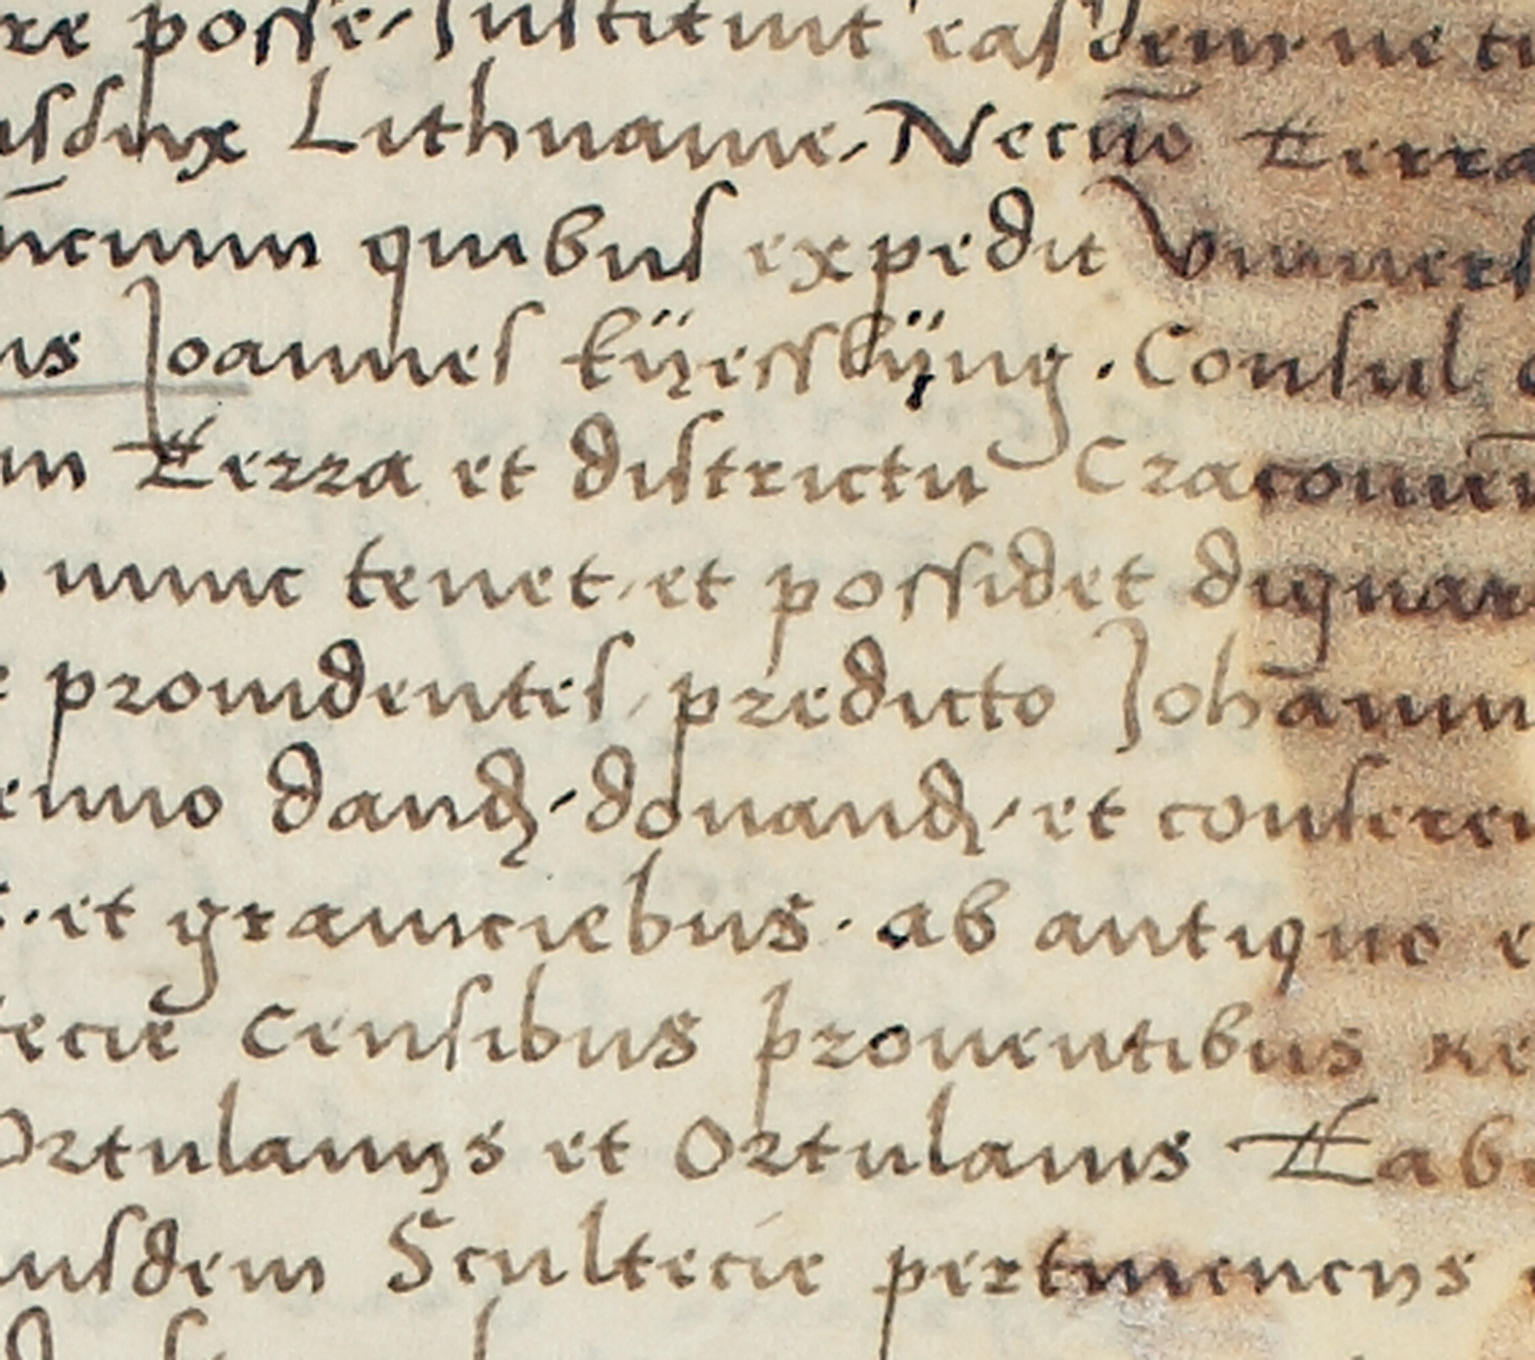 re posse, Instituit easdem ne
usdux Lithuanie, Necnō Terra
ūcum quibus expedit Vniuers
us Joannes kÿessl̵ÿng. Consul
un Terra et districtu Cracouieñ
nunc tenet, et possidet dignar
prouidentes, predicto Johanni
enuo dand, donand, et conferen
et graniciebus. ab antiquo
tecie Censibus prouentibus re
Ortulanijs et Ortulanis Tab
iusdem Scultecie pertinencijs